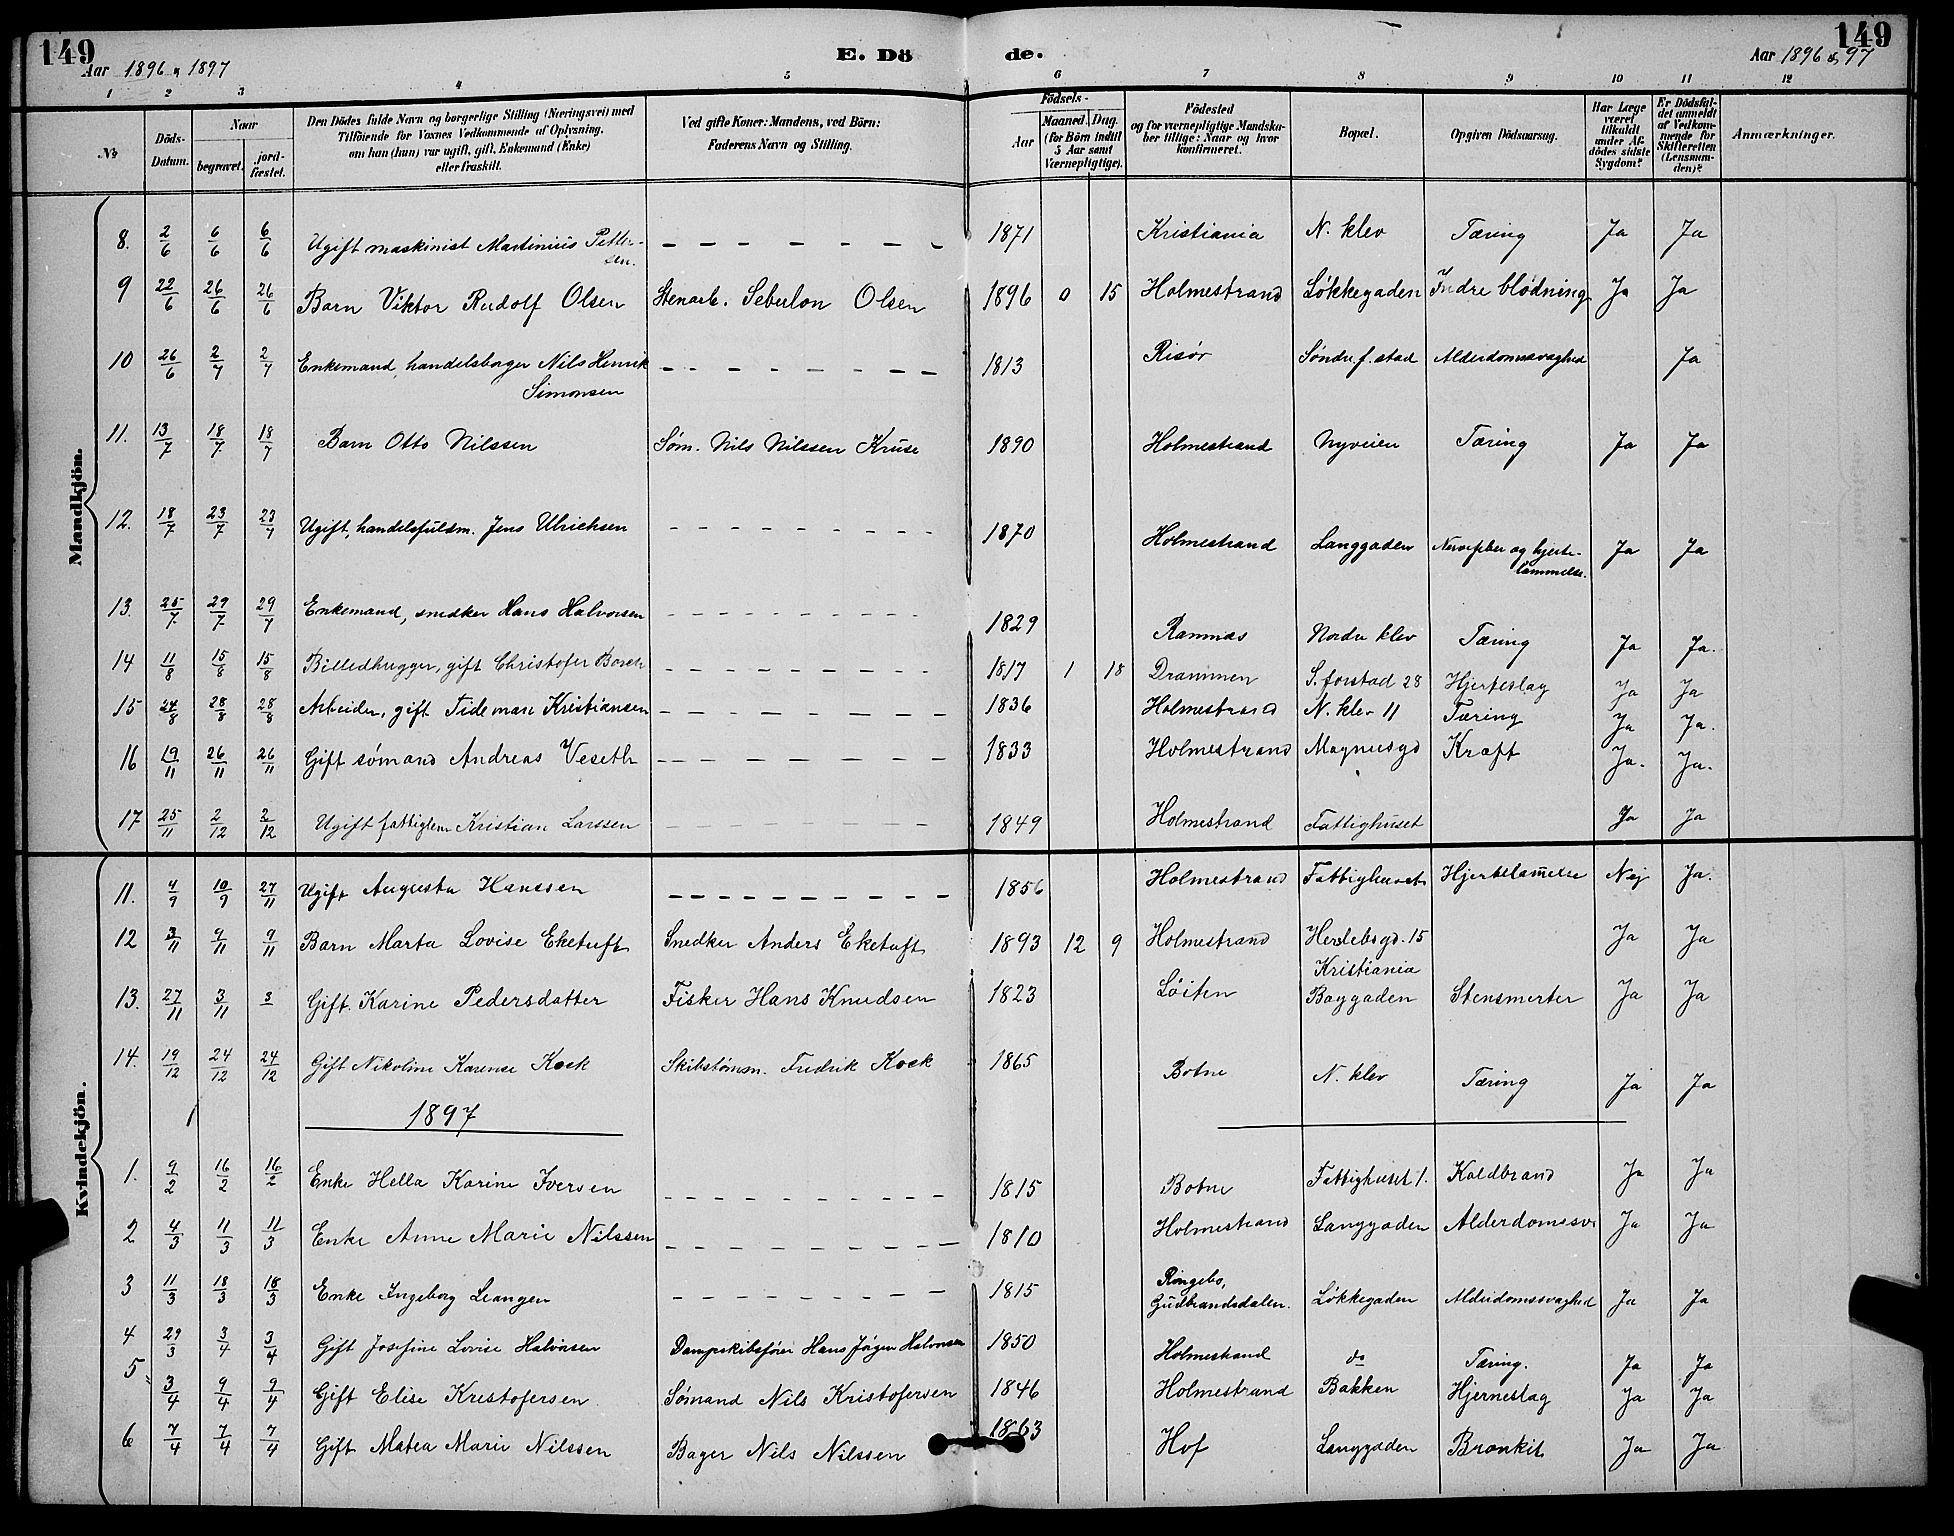 149
Aar 1896 & 1897
E. Dö de.
Aar 1896 & 97
149
1 2 3 4 5 6 7 8 9 10 11 12
No
Döds-Datum.
Naar
begravet.
jord-fæstet.
Den Dödes fulde Navn og borgerlige Stilling (Næringsvei) med
Tilföiende for Voxnes Vedkommende af Oplysning,
om han (hun) var ugift, gift, Enkemand (Enke)
eller fraskilt.
Ved gifte Koner: Mandens, ved Börn:
Faderens Navn og Stilling.
Födsels-
Aar
Maaned. Dag.
(for Börn indtil
5 Aar samt
Værnepligtige).
Födested
og for værnepligtige Mandska-
ber tillige: Naar og hvor
konfirmeret.
Bopæl.
Opgiven Dödsaarsag.
Har Læge
været
tilkaldt
under Af-
dödes sidste
Sygdom?
Er Dödsfal-
det anmeldt
af Vedkom-
mende for
Skifteretten
(Lensman-
den)?
Anmærkninger.
Mandkjön.
8. 2/6 6/6 6/6 Ugift maskinist Martinius Petter-sen. – – – – – – – 1871 Kristiania N. klev Tæring Ja Ja
9 22/6 26/6 26/6 Barn Viktor Rudolf Olsen Stenarb. Olsen 1896 0 15 Holmestrand Løkkegaden Indre blødning Ja Ja
10 26/6 2/7 2/7 Enkemand, handelsborger Nils Henrik Simonsen – – – – – – – – 1813 Risør Søndre f. stad Alderdomssvaghed Ja
11. 13/7 18/7 18/7 Barn Otto Nilssen Søm. Nils Nilssen Kruse 1890 Holmestrand Nyveien Tæring Ja Ja
12. 18/7 23/7 23/7 Ugift, handelsfuldm. Jens Ulrichsen – – – – – – – – – 1870 Holmestrand Langgaden Nervefeber og hjerte-lammelse. Ja Ja
13. 25/7 29/7 29/7 Enkemand, snedker Hans Halvorsen – – – – – – – – 1829 Ramnæs Nordre klev Tæring Ja Ja.
14 11/8 15/8 15/8 Billedhugger, gift Christofer Borch – – – – – – – – 1817 1 18 Drammen S. forstad 28 Hjerteslag Ja Ja
15 24/8 28/8 28/8 Arbeider, gift Tidemann Kristiansen – – – – – – – – 1836 Holmestrand N. klev 11 Tæring Ja Ja.
16 19/11 26/11 26/11 Gift sømand Andreas Veseth – – – – – – – – 1833 Holmestrand Magnusgd Kræft Ja. Ja.
17 25/11 2/12 2/12 Ugift fattiglem Kristian Larssen – – – – – – – – 1849 Holmestrand Fattighuset Ja Ja
Kvindekjön.
11. 4/9 10/9 27/11 Ugift Augusta Hanssen – – – – – – – – – 1856 Holmestrand Fattighuset Hjertelam̅else Nej Ja.
12 3/11 9/11 9/11 Barn Marta Lovise Eketuft Snedker Anders Eketuft 1893 12 9 Holmestrand 15 Ja Ja
13. 27/11 3/11 3 Gift. Karine Pedersdatter Fisker Hans Knudsen 1823 Løiten Kristiania Baggaden Stensmerter Ja Ja
14. 19/12 24/12 24/12 Gift Nikoline Karense Kock Skibstømm. Fredrik Kock 1865 Botne N. klev Tæring Ja Ja
1897
1. 9/2 16/2 16/2 Enke Hella Karine Iversen – – – – – – – – – 1815 Botne Fattighuset 1. Koldbrand Ja Ja
2 4/3 11/3 11/3 Enke Anne Marie Nilssen – – – – – – – – – 1810 Holmestrand Langgaden Alderdomssv Ja Ja
3 11/3 18/3 18/3 Enke Ingeborg Leangen – – – – – – – – 1815 Ringebo, Gudbrandsdalen. Løkkegaden Alderdomssvaghed Ja Ja
4 29/3 3/4 3/4 Gift Josefine Lovise Halvorsen Dampskibsfører Hans Jørgen Halvorsen 1850 Holmestrand do Tæring. Ja Ja
5 3/4 9/4 9/4 Gift Elise Kristofersen Sømand Nils Kristofersen 1846 Holmestrand Bakken Hjerneslag Ja Ja
6 7/4 7/4 7/4 Gift Matea Marie Nilssen Bager Nils Nilssen 1863 Hof Langgaden Bronkit Ja Ja